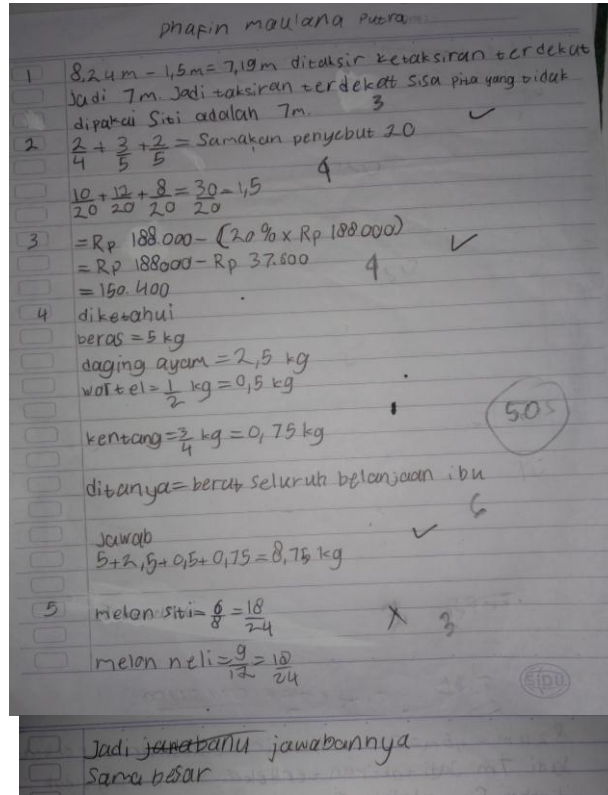 phafin maulana putra
1 8,24m - 1,5m = 7,19m ditaksir ketaksiran terdekat
Jadi 7m. Jadi taksiran terdekatt sisa pita yang tidak
dipakai Siti adalah 7m. 3 ✓
2 2/4 + 3/5 + 2/5 = Samakan penyebut 20
4
10/20 + 12/20 + 8/20 = 30/20 = 1,5
3 = Rp 188.000 - (20% x Rp 188.000) ✓
= Rp 188000 - Rp 37.600 4
= 150.400
4 diketahui
beras = 5 kg
daging ayam = 2,5 kg
wortel = 1/2 kg = 0,5 kg
50
kentang = 3/4 kg = 0,75 kg
ditanya = berat seluruh belanjaan ibu
6
Jawab ✓
5+2,5+0,5+0,75 = 8,75 kg
5 melon siti = 6/8 = 18/24 X 3
melon neli = 9/12 = 18/24
SIDU
Jadi jawabannya
Sama besar